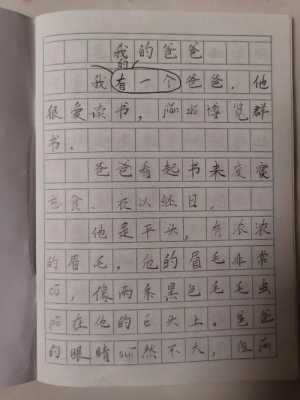 我的爸爸
的
我有一个爸爸。他
很爱读书，而且博览群
书。
爸爸看起书来废寝
忘食、夜以继日。
他是平头，有浓浓
的眉毛，他的眉毛非常
像两条黑色毛毛虫
在他的头上。爸爸
的眼睛虽然不大，但